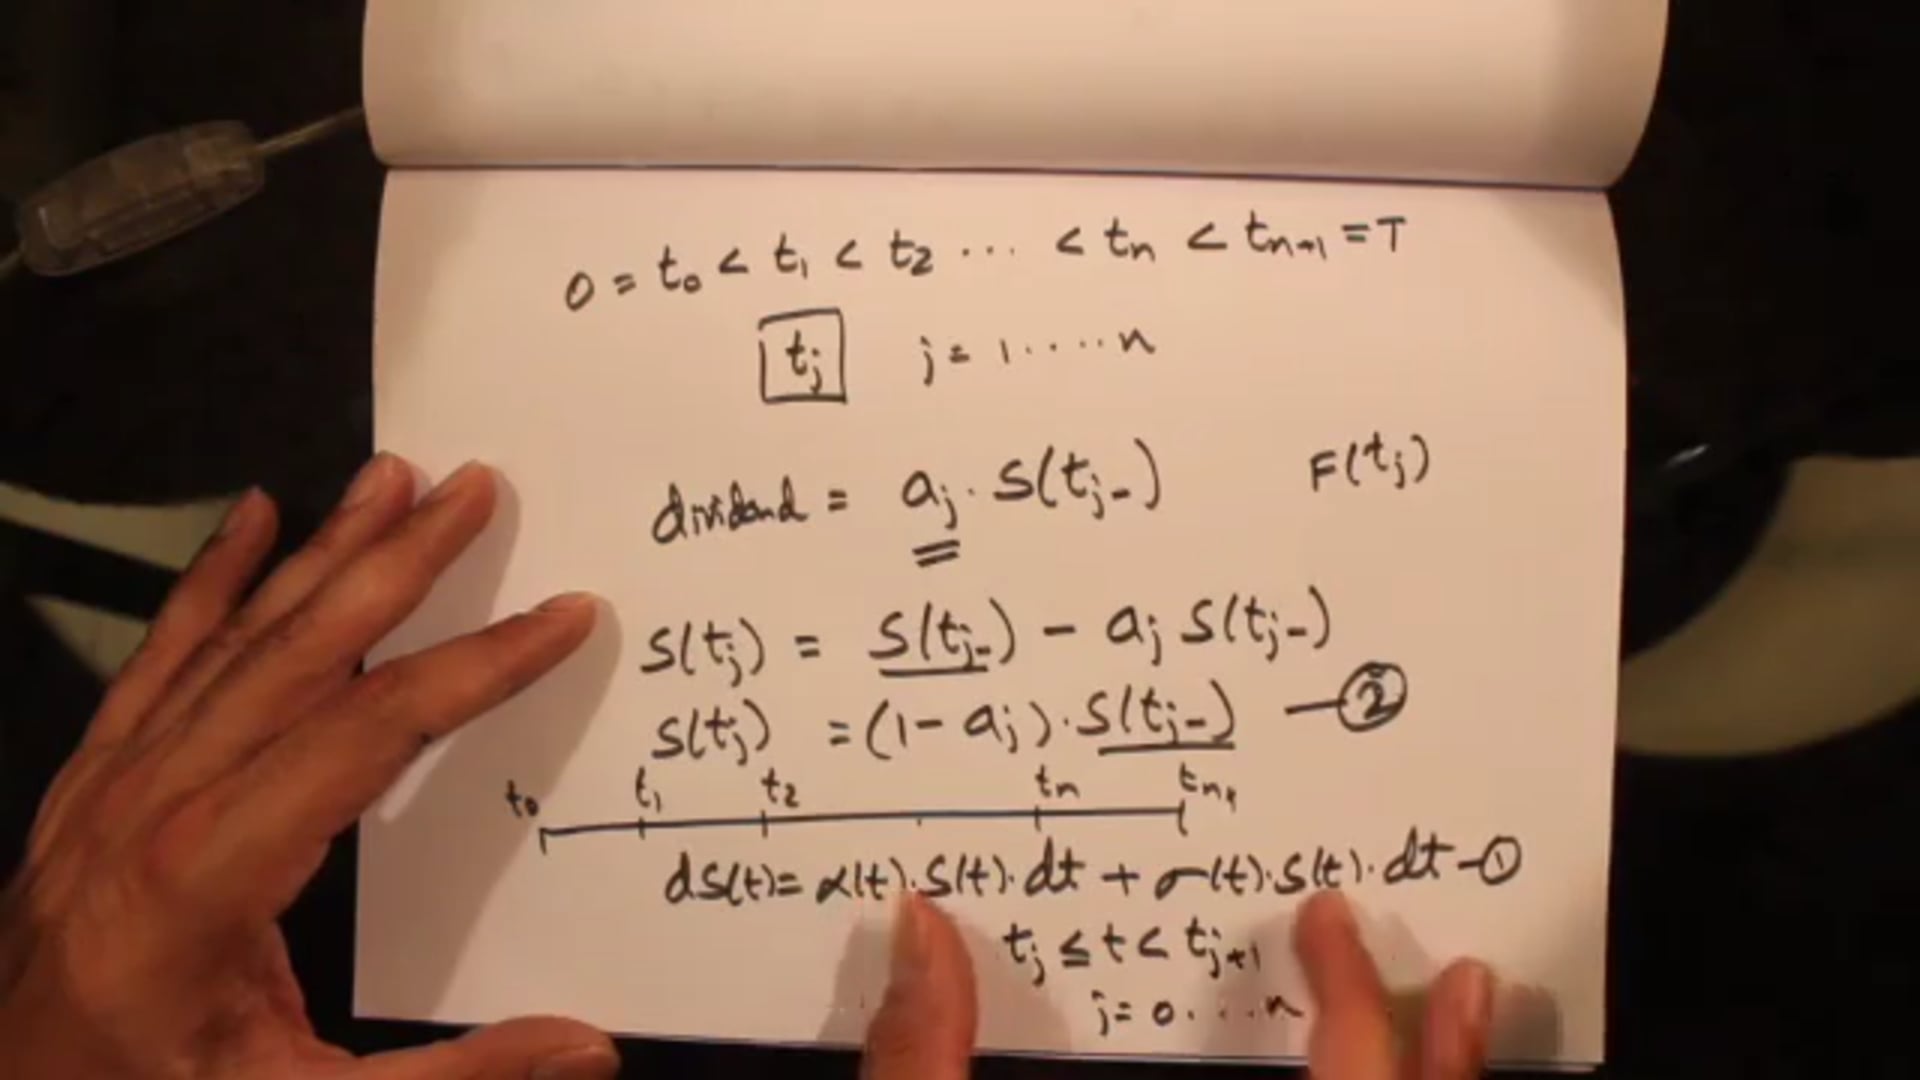 0 = t₀ < t₁ < t₂ ... < tₙ < tₙ₊₁ = T
tⱼ j = 1 .... n
dividend = aⱼ . S(tⱼ-) F(tⱼ)
S(tⱼ) = S(tⱼ-) - aⱼ S(tⱼ-)
S(tⱼ) = (1 - aⱼ) . S(tⱼ-) — ②
t₀ t₁ t₂ tₙ tₙ₊₁
dS(t) = α(t) . S(t) . dt + σ(t) . S(t) . dt — ①
tⱼ ≤ t < tⱼ₊₁
j = 0 ... n